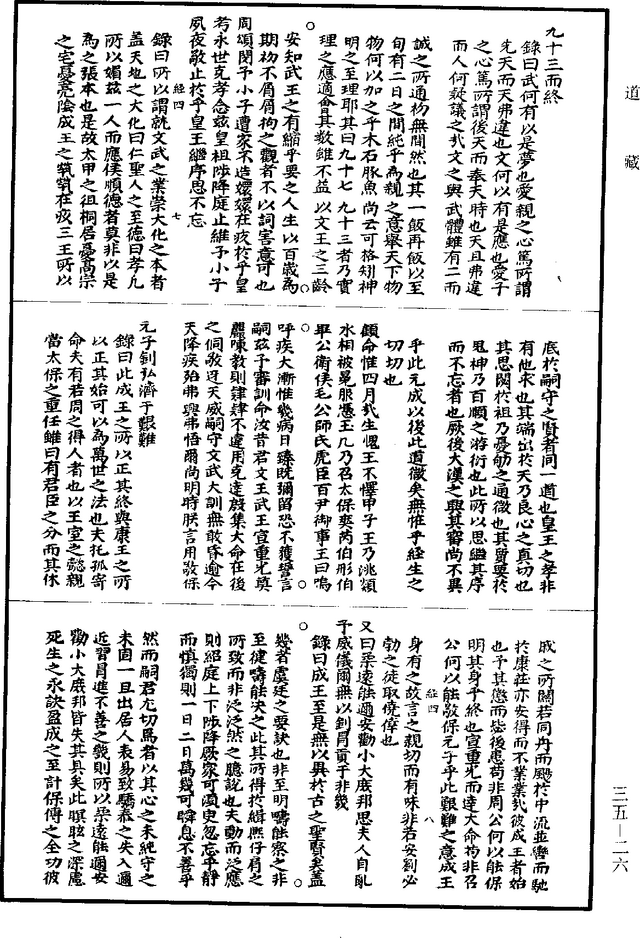 道藏
九十三而終
錄曰武何有以是夢也愛親之心篤所謂
先天而天弗違也文何以有是應也愛子
之心篤所謂後天而奉天時也天且弗違
而人何疑議之哉文之與武體雖有二而
誠之所通初無間然也其一飯再飯以至
旬有二日之間純乎為親之意舉天下物
物何以加之乎木石豚魚尚云可格矧神
明之至理耶其曰九十七九十三者乃實
理之應適會其數錐不益以文王之三齡
安知武王之有縮乎要之人生以百歲為
期初不屑屑拘之觀者不以詞害意可也
周頌閔予小子遭家不造嬛嬛在疚於乎皇
考永世克孝念茲皇祖陟降庭止維予小子
夙夜敬止於乎皇王繼序思不忘
經四 七
錄曰所以謂就文武之業崇大化之本者
盖天地之大化曰仁聖人之至德曰孝凡
所以媚茲一人而應侯順德者莫非以是
為之張本也是故太甲之徂桐居憂高宗
之宅憂亮陰成王之煢煢在疚三王所以
底於嗣守之賢者同一道也皇王之孝非
有他求也其端出於天乃良心之真切也
其思關於祖乃憂勞之通微也其質要於
鬼神乃百順之游衍也此所以思繼其序
而不忘者也厥後大漢之興其審尚不異
乎此元成以後此道微矣無惟乎經生之
切切也
顧命惟四月哉生魄王不懌甲子王乃洮頮
水相被冕服憑玉几乃召太保奭芮伯彤伯
畢公衛侯毛公師氏虎臣百尹御事王曰嗚
呼疾大漸惟幾病日臻既彌留恐不獲誓言
嗣茲予審訓命汝昔君文王武王宣重光奠
麗陳教則肄肄不違用克達殷集大命在後
之侗敬迓天威嗣守文武大訓無敢昏逾今
天降疾殆弗興弗悟爾尚明時朕言用敬保
元子釗弘濟于艱難
錄曰此成王之所以正其終與康王之所
以正其始可以為萬世之法也夫托孤寄
命夫有若周之得人者也以王室之懿親
當太保之重任雖曰有君臣之分而其休
戚之所關若同舟而颺於中流並轡而馳
於康莊亦安得而不業業哉彼成王者始
也予其懲而毖後患苟非周公何以能保
明其身乎終也宣重光而達大命苟非召
公何以能敬保元子乎此艱難之意成王
身有之故言之親切而有味非若安劉必
勃之徒取僥倖也
經四 八
又曰柔遠能邇安勸小大庶邦思夫人自亂
于威儀爾無以釗冒貢于非幾
錄曰成王至是無以異於古之聖賢矣盖
幾者虞廷之要訣也非至明疇能察之非
至健疇能夬之此其所得於緝熈仔肩之
所致而非泛泛然之臆說也夫動而泛應
則紹庭上下陟降厥家可須臾忽忘乎靜
而慎獨則一日二日萬幾可瞬息不善乎
然而嗣君尤切焉者以其心之未純守之
未固一旦出居人表易致驕泰之失入邇
近習冐進不善之幾則所以柔遠能邇安
勸小大庶邦皆失其具矣此瞑眩之深慮
死生之永訣盈成之至計保傅之全功彼
三五—二六